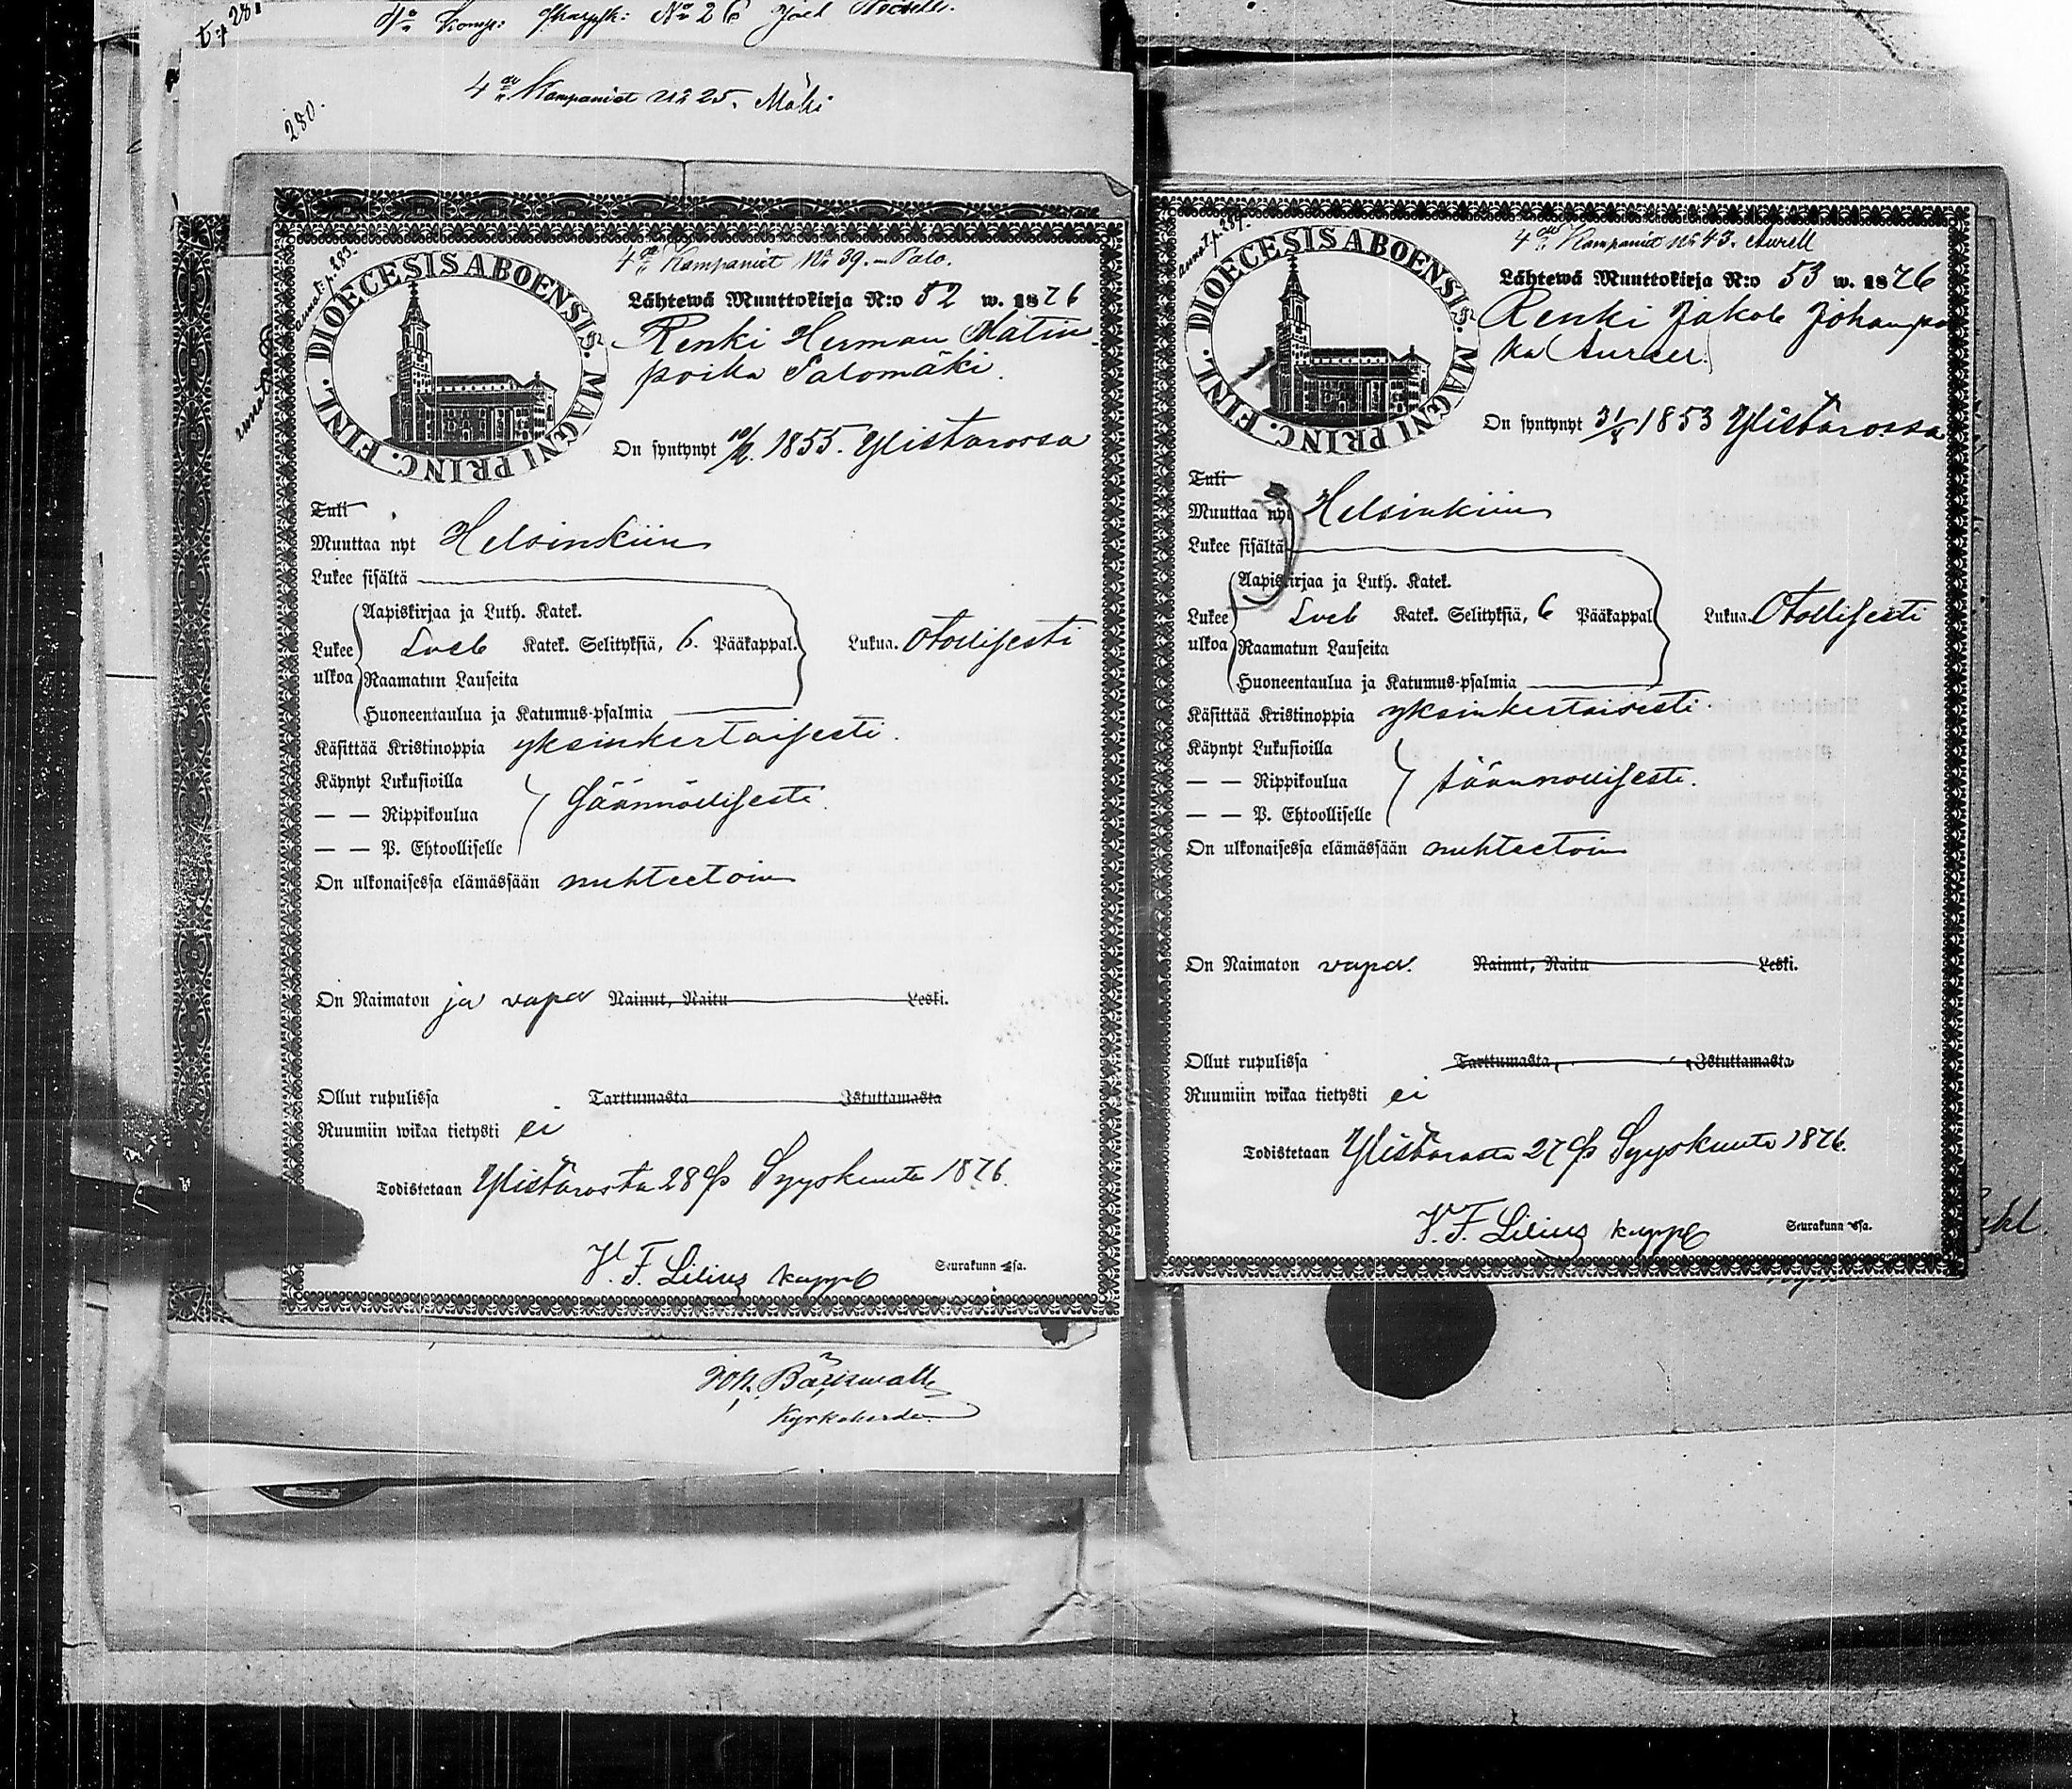 280.
4de Kompaniet No 25. Mäki
annot. p. 285.
4de Kompaniet No 39. Palo.
DIOECESIS ABOENSIS. MAGNI PRINC. FINL.
Lähtewä Muuttokirja N:o 52 w. 1876
Renki Herman Matin-
poika Salomäki.
On syntynyt 10/2. 1855. Ylistarossa
Tuli
Muuttaa nyt Helsinkiin
Lukee sisältä
Aapiskirjaa ja Luth. Katek.
Lukee ulkoa Sveb Katek. Selityksiä, 6. Pääkappal. Lukua. Otollisesti
Raamatun Lauseita
Huoneentaulua ja Katumus-psalmia
Käsittää Kristinoppia yksinkertaisesti.
Käynyt Lukusioilla
— — Rippikoulua säännöllisesti.
— — P. Ehtoolliselle
On ulkonaisessa elämässään nuhteetoin
On Naimaton ja vapa Nainut, Naitu Leski.
Ollut rupulissa Tarttumasta Istuttamasta
Ruumiin wikaa tietysti ei
Todistetaan Ylistarosta 28 p Syyskuuta 1876.
V. F. Lilius kappl Seurakunn ssa.
Kyrkoherde
annot. p. 287.
4de Kompaniet No 43. Aurell
DIOECESIS ABOENSIS. MAGNI PRINC. FINL.
Lähtewä Muuttokirja N:o 53 w. 1876
Renki Jakob Johanpo
ika
On syntynyt 31/8 1853 Ylistarossa
Tuli
Muuttaa nyt Helsinkiin
Lukee sisältä
Aapiskirjaa ja Luth. Katek.
Lukee ulkoa Sveb Katek. Selityksiä, 6 Pääkappal. Lukua. Otollisesti
Raamatun Lauseita
Huoneentaulua ja Katumus-psalmia
Käsittää Kristinoppia yksinkertaisesti.
Käynyt Lukusioilla
— — Rippikoulua säännollisesti.
— — P. Ehtoolliselle
On ulkonaisessa elämässään nuhteetoin
On Naimaton vapa. Nainut, Naitu Leski.
Ollut rupulissa Tarttumasta, Istuttamasta
Ruumiin wikaa tietysti ei
Todistetaan Ylistarosta 27 p Syyskuuta 1876.
V. F. Lilius kappl Seurakunn ssa.